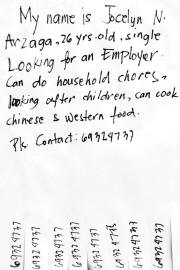 My name is Jocelyn N.
Arzaga, 26 yrs. old, single
Looking for an Employer.
Can do household chores,
looking after children, can cook
chinese & western food.
Pls. Contact: 69329737
69329737
69329737
69329737
69329737
69329737
69329737
69329737
69329737